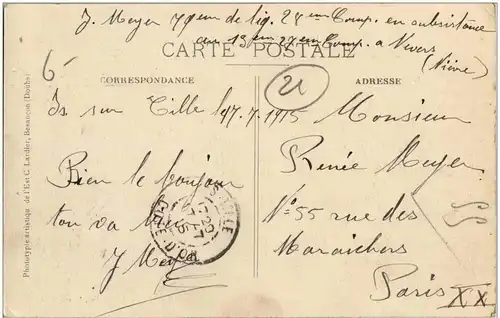 J. Meyer 79em de lig. 28em Comp. en subsistance
au 13em 28em Comp. a Nevers
(Nièvre)
CARTE POSTALE
6-
21
CORRESPONDANCE
ADRESSE
Is sur Tille le 17.7.1915
Bien le bonjour
ton
J Meyer
Monsieur
Renée Meyer
N° 55 rue des
Maraichers
Paris XX
55
Phototypie artistique de l'Est C. Lardier, Besançon (Doubs)